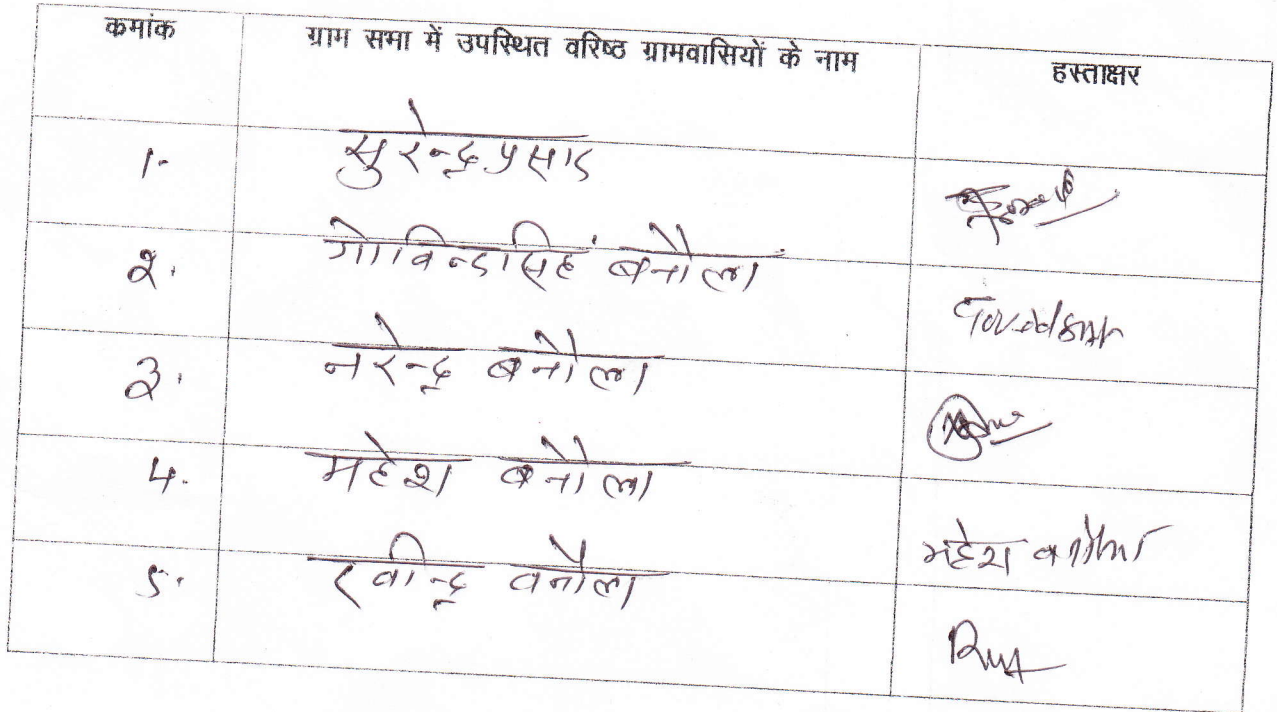 कमांक ग्राम समा में उपस्थित वरिष्ठ ग्रामवासियों के नाम हस्ताक्षर
1- सुरेन्द्र प्रसाद
२. गोविन्दसिहं बनौला
३. नरेन्द्र बनौला
4. महेश बनौला महेश बनौला
5. रवीन्द्र वनौला